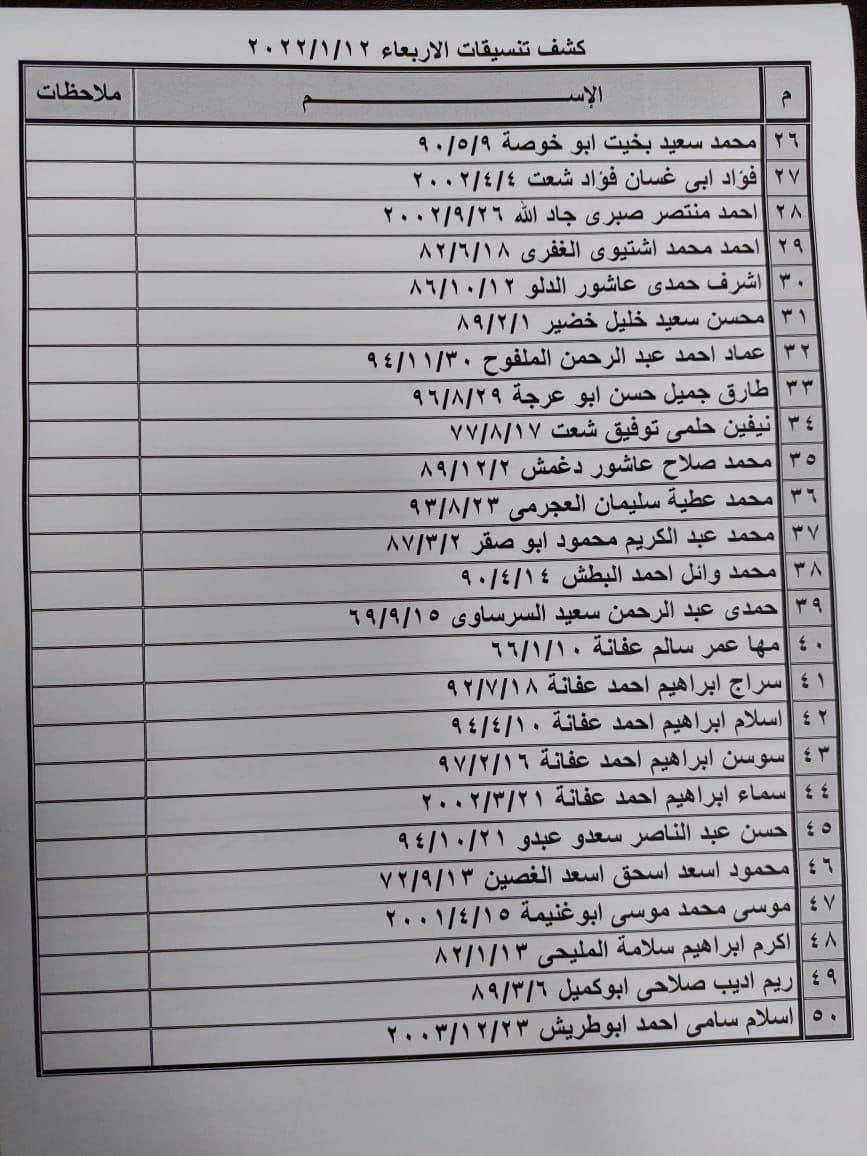 كشف تنسيقات الاربعاء ٢٠٢٢/١/١٢
م الإســـــم ملاحظات
٢٦ محمد سعيد بخيت ابو خوصة ٩٠/٥/٩
٢٧ فؤاد ابى غسان فؤاد شعت ٢٠٠٢/٤/٤
٢٨ احمد منتصر صبرى جاد الله ٢٠٠٢/٩/٢٦
٢٩ احمد محمد اشتيوى الغفرى ٨٢/٦/١٨
٣٠ اشرف حمدى عاشور الدلو ٨٦/١٠/١٢
٣١ محسن سعيد خليل خضير ٨٩/٢/١
٣٢ عماد احمد عبد الرحمن الملفوح ٩٤/١١/٣٠
٣٣ طارق جميل حسن ابو عرجة ٩٦/٨/٢٩
٣٤ نيفين حلمى توفيق شعت ٧٧/٨/١٧
٣٥ محمد صلاح عاشور دغمش ٨٩/١٢/٢
٣٦ محمد عطية سليمان العجرمى ٩٣/٨/٢٣
٣٧ محمد عبد الكريم محمود ابو صقر ٨٧/٣/٢
٣٨ محمد وائل احمد البطش ٩٠/٤/١٤
٣٩ حمدى عبد الرحمن سعيد السرساوى ٦٩/٩/١٥
٤٠ مها عمر سالم عفانة ٦٦/١/١٠
٤١ سراج ابراهيم احمد عفانة ٩٢/٧/١٨
٤٢ اسلام ابراهيم احمد عفانة ٩٤/٤/١٠
٤٣ سوسن ابراهيم احمد عفانة ٩٧/٢/١٦
٤٤ سماء ابراهيم احمد عفانة ٢٠٠٢/٣/٢١
٤٥ حسن عبد الناصر سعدو عبدو ٩٤/١٠/٢١
٤٦ محمود اسعد اسحق اسعد الغصين ٧٢/٩/١٣
٤٧ موسى محمد موسى ابوغنيمة ٢٠٠١/٤/١٥
٤٨ اكرم ابراهيم سلامة المليحى ٨٢/١/١٣
٤٩ ريم اديب صلاحى ابوكميل ٨٩/٣/٦
٥٠ اسلام سامى احمد ابوطريش ٢٠٠٣/١٢/٢٣